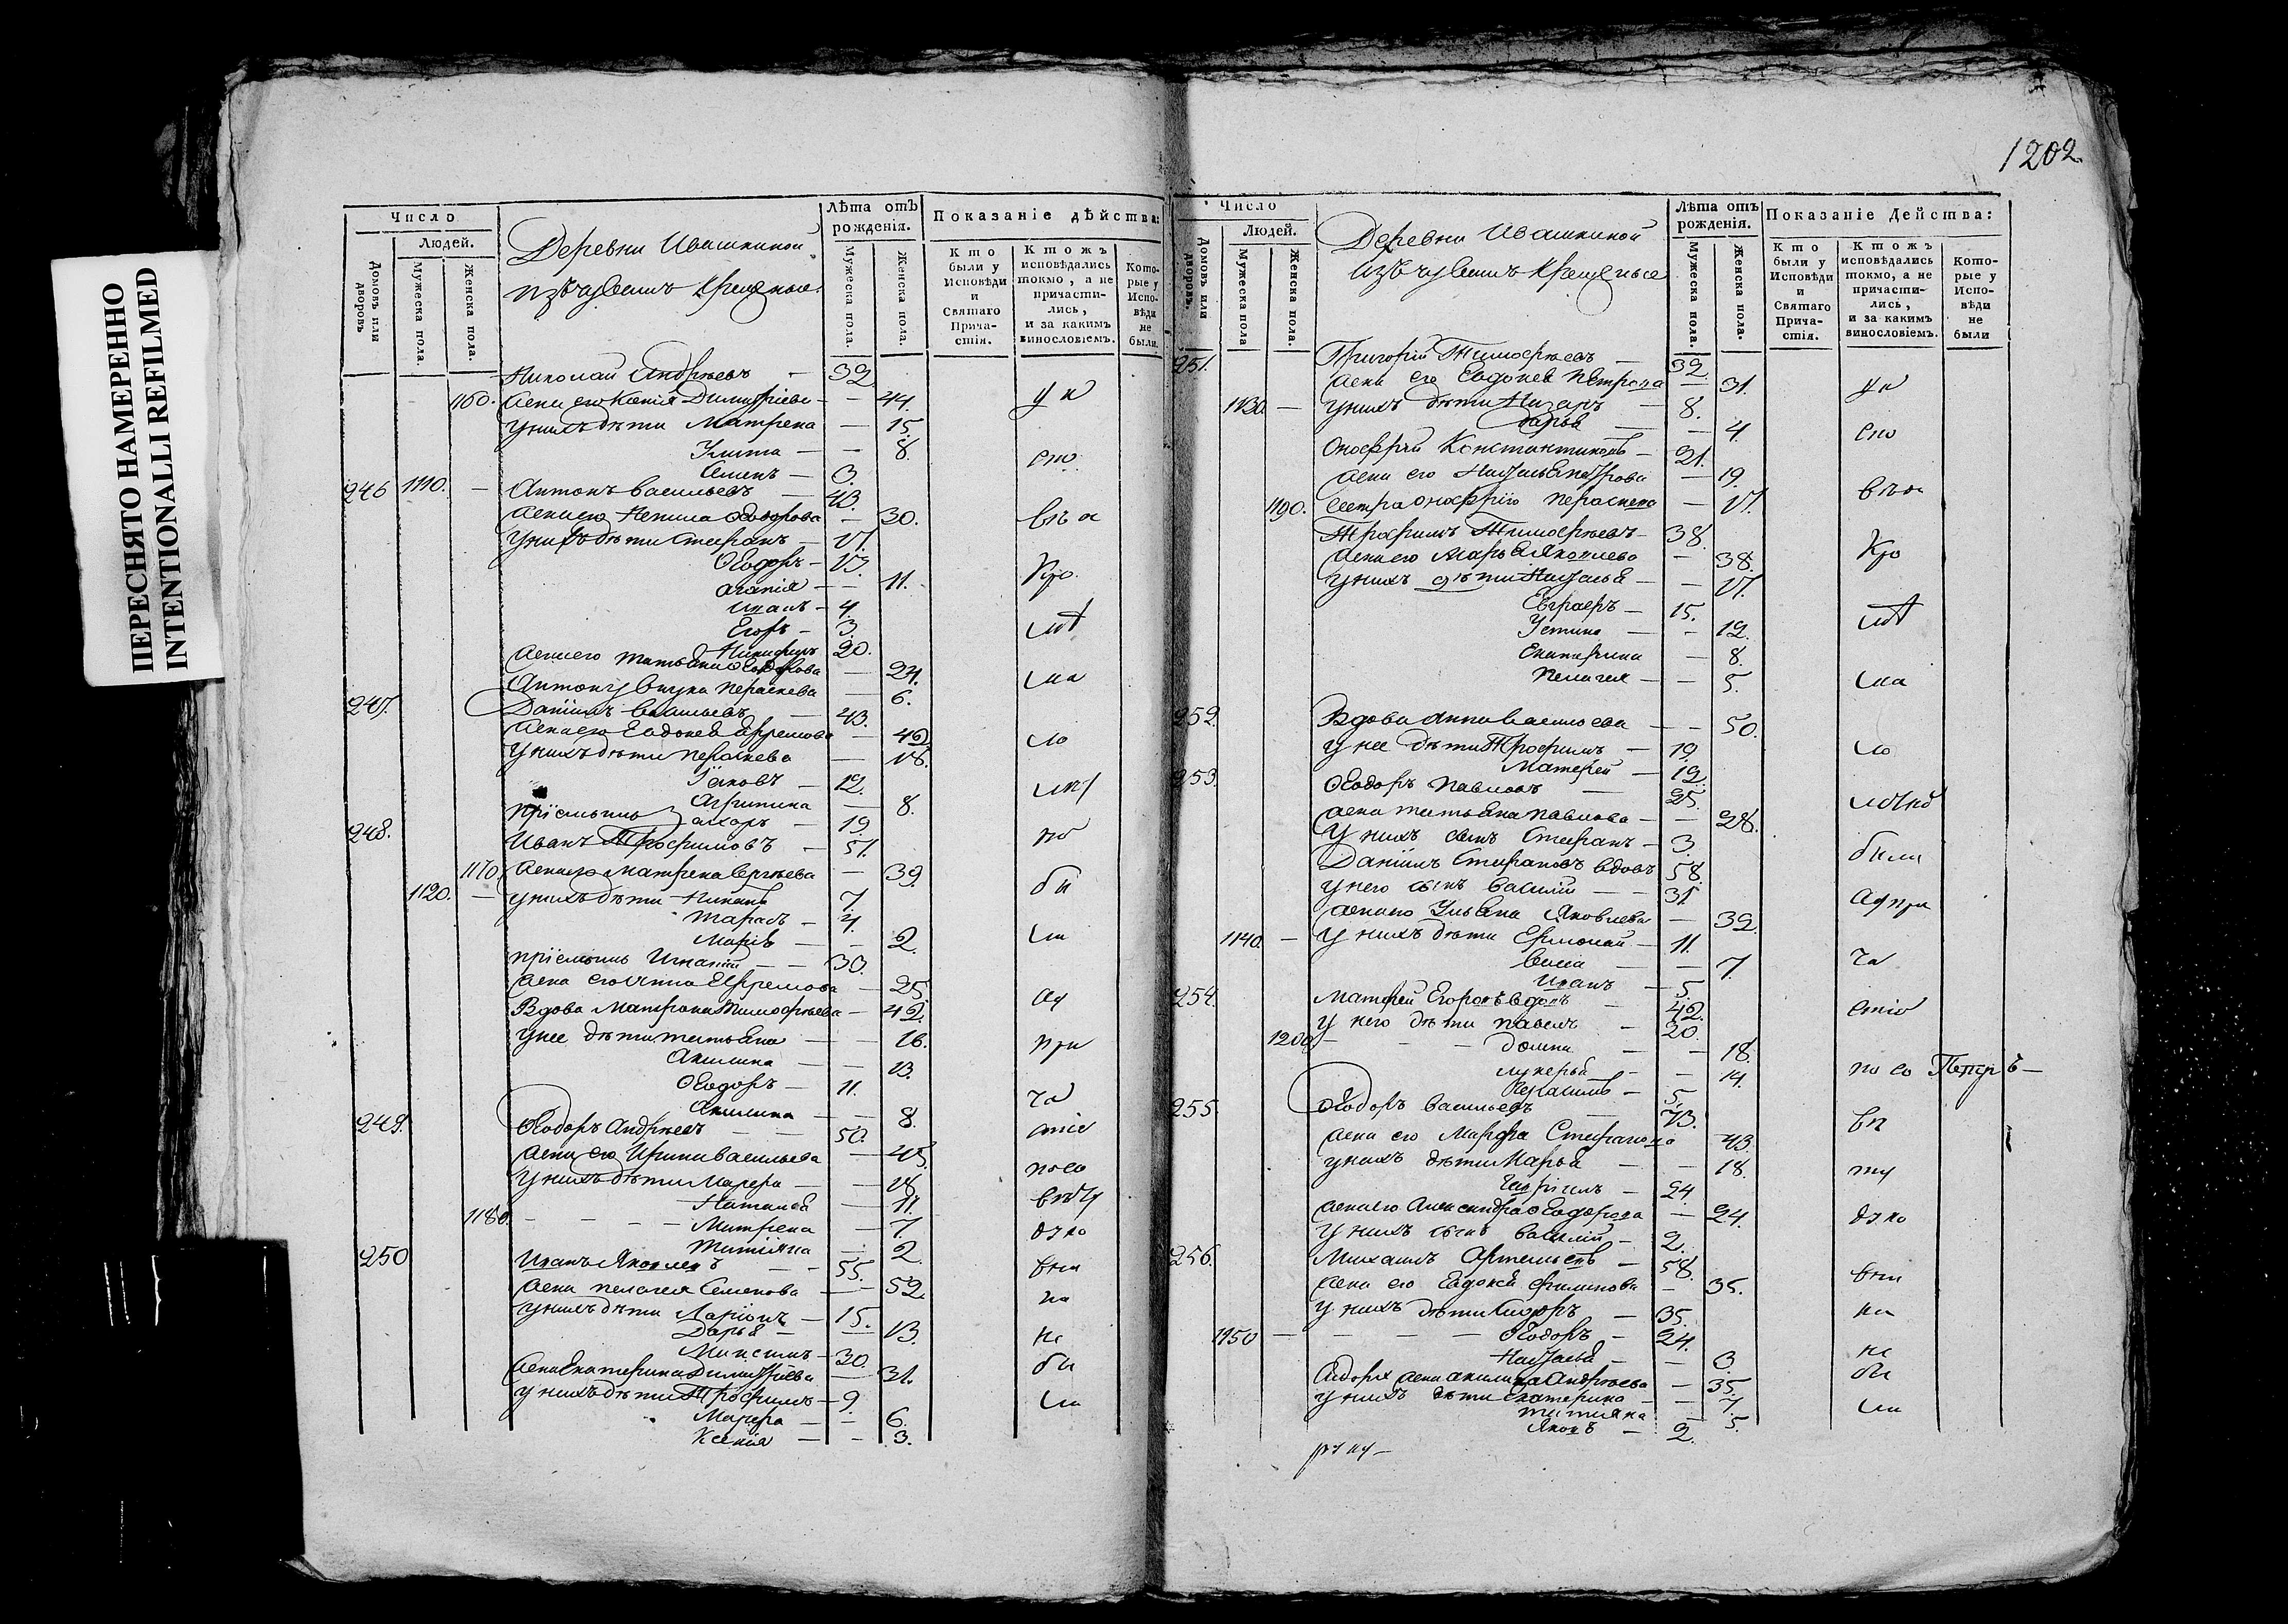 ПЕРЕСНЯТО НАМЕРЕННО
INTENTIONALLI REFILMED
Число
Людей.
Домовъ или дворовъ
Мужеска пола.
Женска пола.
Деревни Ивашкиной
изъ чувашъ крещеные.
Лѣта отъ рожденія.
Мужеска пола.
Женска пола.
Показаніе дѣйства:
Кто были у Исповѣди и Святаго Причастія.
Ктожъ исповѣдались токмо, а не причастились, и за какимъ винословіемъ.
Которые у Исповѣди не были.
Николай Андрѣевъ — 32
1160. жена его Ксенія Димитріева — 44.
у нихъ дѣти Матрена — 15.
Улита — 8.
Семенъ — 3.
246 1110. — Антонъ Васильевъ — 43.
жена его Ненила Ѳеодорова — 30.
у нихъ дѣти Стефанъ — 17.
Ѳеодоръ — 13.
Агапія — 11.
Иванъ — 4.
Егоръ — 3.
Никифоръ 20.
жена его Татьяна — 24.
Антону внука Параскева — 6.
247. Даніилъ Васильевъ — 43.
жена его Евдокея Ефремова — 42
у нихъ дѣти Параскева — 18.
Іяковъ — 12.
Агрипина — 8.
пріемышь — 19.
248. Иванъ Трофимовъ — 51.
1170. жена его Матрена Сергѣева — 39.
1120. — у нихъ дѣти — 7.
Тарасъ — 4.
Марія — 2.
пріемышь Игнатій — 30.
жена его Анна Ефремова — 25.
Вдова Матрона Тимофѣева — 42.
у нее дѣти Татьяна — 16.
Акилина — 13.
Ѳеодоръ — 11.
Акилина — 8.
249. Ѳеодоръ Андрѣевъ — 50.
жена его Ирина Васильева — 45.
у нихъ дѣти Марфа — 18.
Наталья — 11.
1180. — Матрена — 7.
Татіяна — 2.
250 Иванъ Яковлевъ — 55.
жена Пелагея Семенова — 52.
у нихъ дѣти Ларіонъ — 15.
Дарья — 13.
Максимъ — 30.
жена Екатерина Димитріева — 31.
у нихъ дѣти Трофимъ — 9.
Марфа — 6.
Ксенія — 3.
1202.
Число
Людей.
Домовъ или дворовъ.
Мужеска пола
Женска пола.
Деревни Ивашкиной
изъ чувашъ крещеные
Лѣта отъ рожденія.
Мужеска пола.
Женска пола.
Показаніе Действа:
Кто были у Исповѣди и Святаго Причастія.
Ктожъ исповѣдались токмо, а не причастились, и за какимъ винословіемъ.
Которые у Исповѣди не были
251. Григорій Тимофѣевъ — 32.
жена его Евдокея Петрова — 31.
1130. — у нихъ дѣти Назаръ — 8.
Дарья — 4.
Онофрій Константиновъ — 21.
жена его Наталья Петрова — 19.
1190. сестра Онофрію Параскева — 17.
Трофимъ Тимофѣевъ — 38.
жена его Марья Яковлева — 38.
у нихъ дѣти Наталья — 17.
Евграфъ — 15.
Устина — 12.
Екатерина — 8.
Пелагея — 5.
252. Вдова Анна Васильева — 50.
у нее дѣти Трофимъ — 19.
Матфей — 12
253. Ѳеодоръ Павловъ — 25.
жена Татьяна Павлова — 28.
у нихъ сынъ Стефанъ — 3.
Даніилъ Стефановъ вдовъ 58.
у него сынъ Василій — 31
жена его Ульяна Яковлева — 32.
1140. — у нихъ дѣти Ермолай — 11.
— 7.
Иванъ — 5.
254. Матфей Егоровъ вдовъ — 42.
у него дѣти Павелъ — 20.
1200. — Домна — 18.
Лукерья — 14.
Герасимъ — 5.
255. Ѳеодоръ Васильевъ — 73.
жена его Марфа Стефанова 43.
у нихъ дѣти Марья — 18.
Гавріилъ — 24.
жена его Александра Ѳеодорова — 24.
у нихъ сынъ Василій — 2.
256. Михаилъ Артемьевъ — 58.
жена его Евдокея Филипова — 35.
у нихъ дѣти Сидоръ — 35.
1150 — Ѳеодоръ — 24.
Наталья — 3.
Сидора жена Акилина Андрѣева — 35.
у нихъ дѣти Екатерина — 7.
Татіяна — 5.
Яковъ — 2.